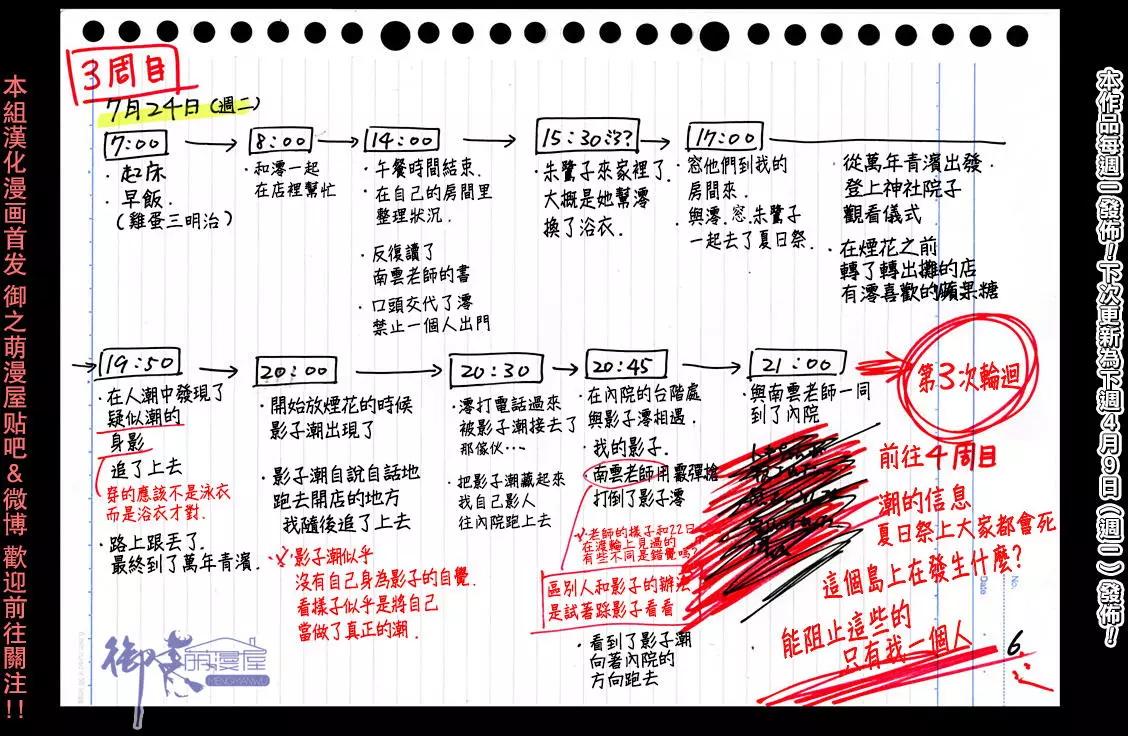 3周目
7月24日(週二)
7:00
・起床
・早飯.
(雞蛋三明治)
8:00
・和澪一起
在店裡幫忙
14:00
・午餐時間結束.
・在自己的房間里
整理狀況.
・反復讀了
南雲老師的書
・口頭交代了澪
禁止一個人出門
15:30
・朱鷺子來家裡了.
大概是她幫澪
換了浴衣.
17:00
・窓他們到我的
房間來.
・與澪.窓.朱鷺子
一起去了夏日祭.
・從萬年青濱出發.
登上神社院子
觀看儀式
・在煙花之前
轉了轉出攤的店
有澪喜歡的蘋果糖
19:50
・在人潮中發現了
疑似潮的
身影
追了上去
穿的應該不是泳衣
而是浴衣才對.
・路上跟丟了.
最終到了萬年青濱.
20:00
・開始放煙花的時候
影子潮出現了
・影子潮自說自話地
跑去開店的地方
我隨後追了上去
影子潮似乎
沒有自己身為影子的自覺.
看樣子似乎是將自己
當做了真正的潮.
20:30
・澪打電話過來
被影子潮接去了
那傢伙…
・把影子潮藏起來
我自己影人
往內院跑上去
20:45
・在內院的台階處
與影子澪相遇.
・我的影子.
・南雲老師用霰彈槍
打倒了影子澪
老師的樣子和22日
在渡輪上見過的
有些不同是錯覺嗎?
區別人和影子的辦法
是試著踩影子看看
・看到了影子潮
向著內院的
方向跑去
21:00
・與南雲老師一同
到了內院
第3次輪迴
前往4周目
潮的信息
夏日祭上大家都會死
這個島上在發生什麼?
能阻止這些的
只有我一個人
No.
Date
6
御之萌漫屋
MENGMANWU
本組漢化漫画首发 御之萌漫屋贴吧&微博 歡迎前往關注!!
本作品每週一發佈!下次更新為下週4月9日(週二)發佈!